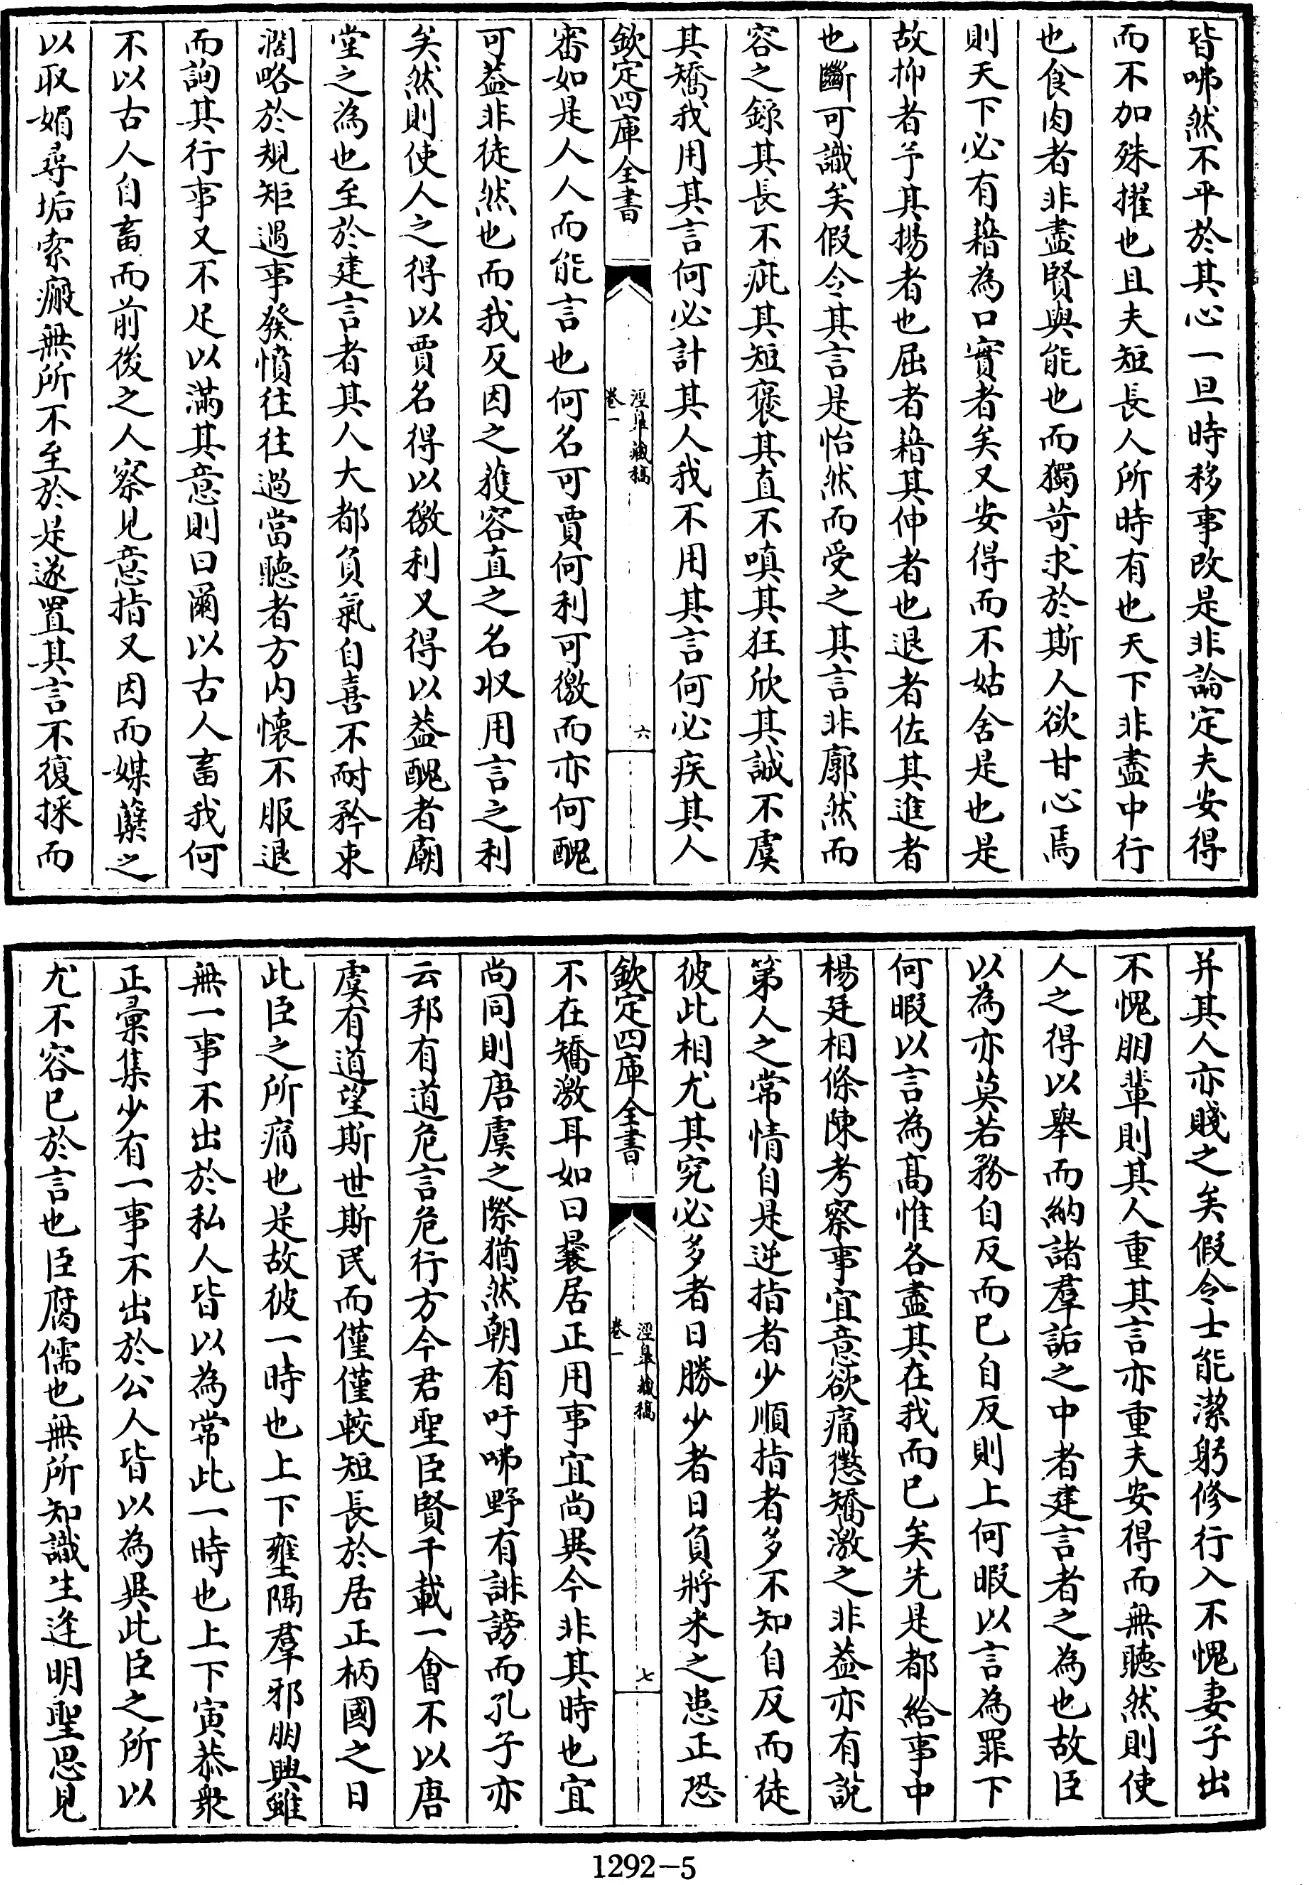 皆咈然不平於其心一旦時移事改是非論定夫安得
而不加殊擢也且夫短長人所時有也天下非盡中行
也食肉者非盡賢與能也而獨苛求於斯人欲甘心焉
則天下必有藉為口實者矣又安得而不姑舍是也是
故抑者予其揚者也屈者藉其伸者也退者佐其進者
也斷可識矣假令其言是怡然而受之其言非廓然而
容之錄其長不疵其短褒其直不嗔其狂欣其誠不虞
其矯我用其言何必計其人我不用其言何必疾其人
欽定四庫全書
涇臯藏稿
卷一
六
審如是人人而能言也何名可賈何利可徼而亦何醜
可蓋非徒然也而我反因之獲容直之名収用言之利
矣然則使人之得以賈名得以徼利又得以蓋醜者廟
堂之為也至於建言者其人大都負氣自喜不耐矜束
濶略於規矩遇事發憤往往過當聽者方内懷不服退
而詢其行事又不足以滿其意則曰爾以古人畜我何
不以古人自畜而前後之人察見意指又因而媒蘖之
以取媚尋垢索瘢無所不至於是遂置其言不復採而
并其人亦賤之矣假令士能潔躬修行入不愧妻子出
不愧朋輩則其人重其言亦重夫安得而無聽然則使
人之得以舉而納諸羣詬之中者建言者之為也故臣
以為亦莫若務自反而已自反則上何暇以言為罪下
何暇以言為高惟各盡其在我而已矣先是都給事中
楊廷相條陳考察事宜意欲痛懲矯激之非蓋亦有説
第人之常情自是逆指者少順指者多不知自反而徒
彼此相尤其究必多者日勝少者日負將来之患正恐
欽定四庫全書
涇臯藏稿
卷一
七
不在矯激耳如曰曩居正用事宜尚異今非其時也宜
尚同則唐虞之際猶然朝有吁咈野有誹謗而孔子亦
云邦有道危言危行方今君聖臣賢千載一會不以唐
虞有道望斯世斯民而僅僅較短長於居正柄國之日
此臣之所痛也是故彼一時也上下壅隔羣邪朋興雖
無一事不出於私人皆以為常此一時也上下寅恭衆
正彙集少有一事不出於公人皆以為異此臣之所以
尤不容已於言也臣腐儒也無所知識生逢明聖思見
1292-5